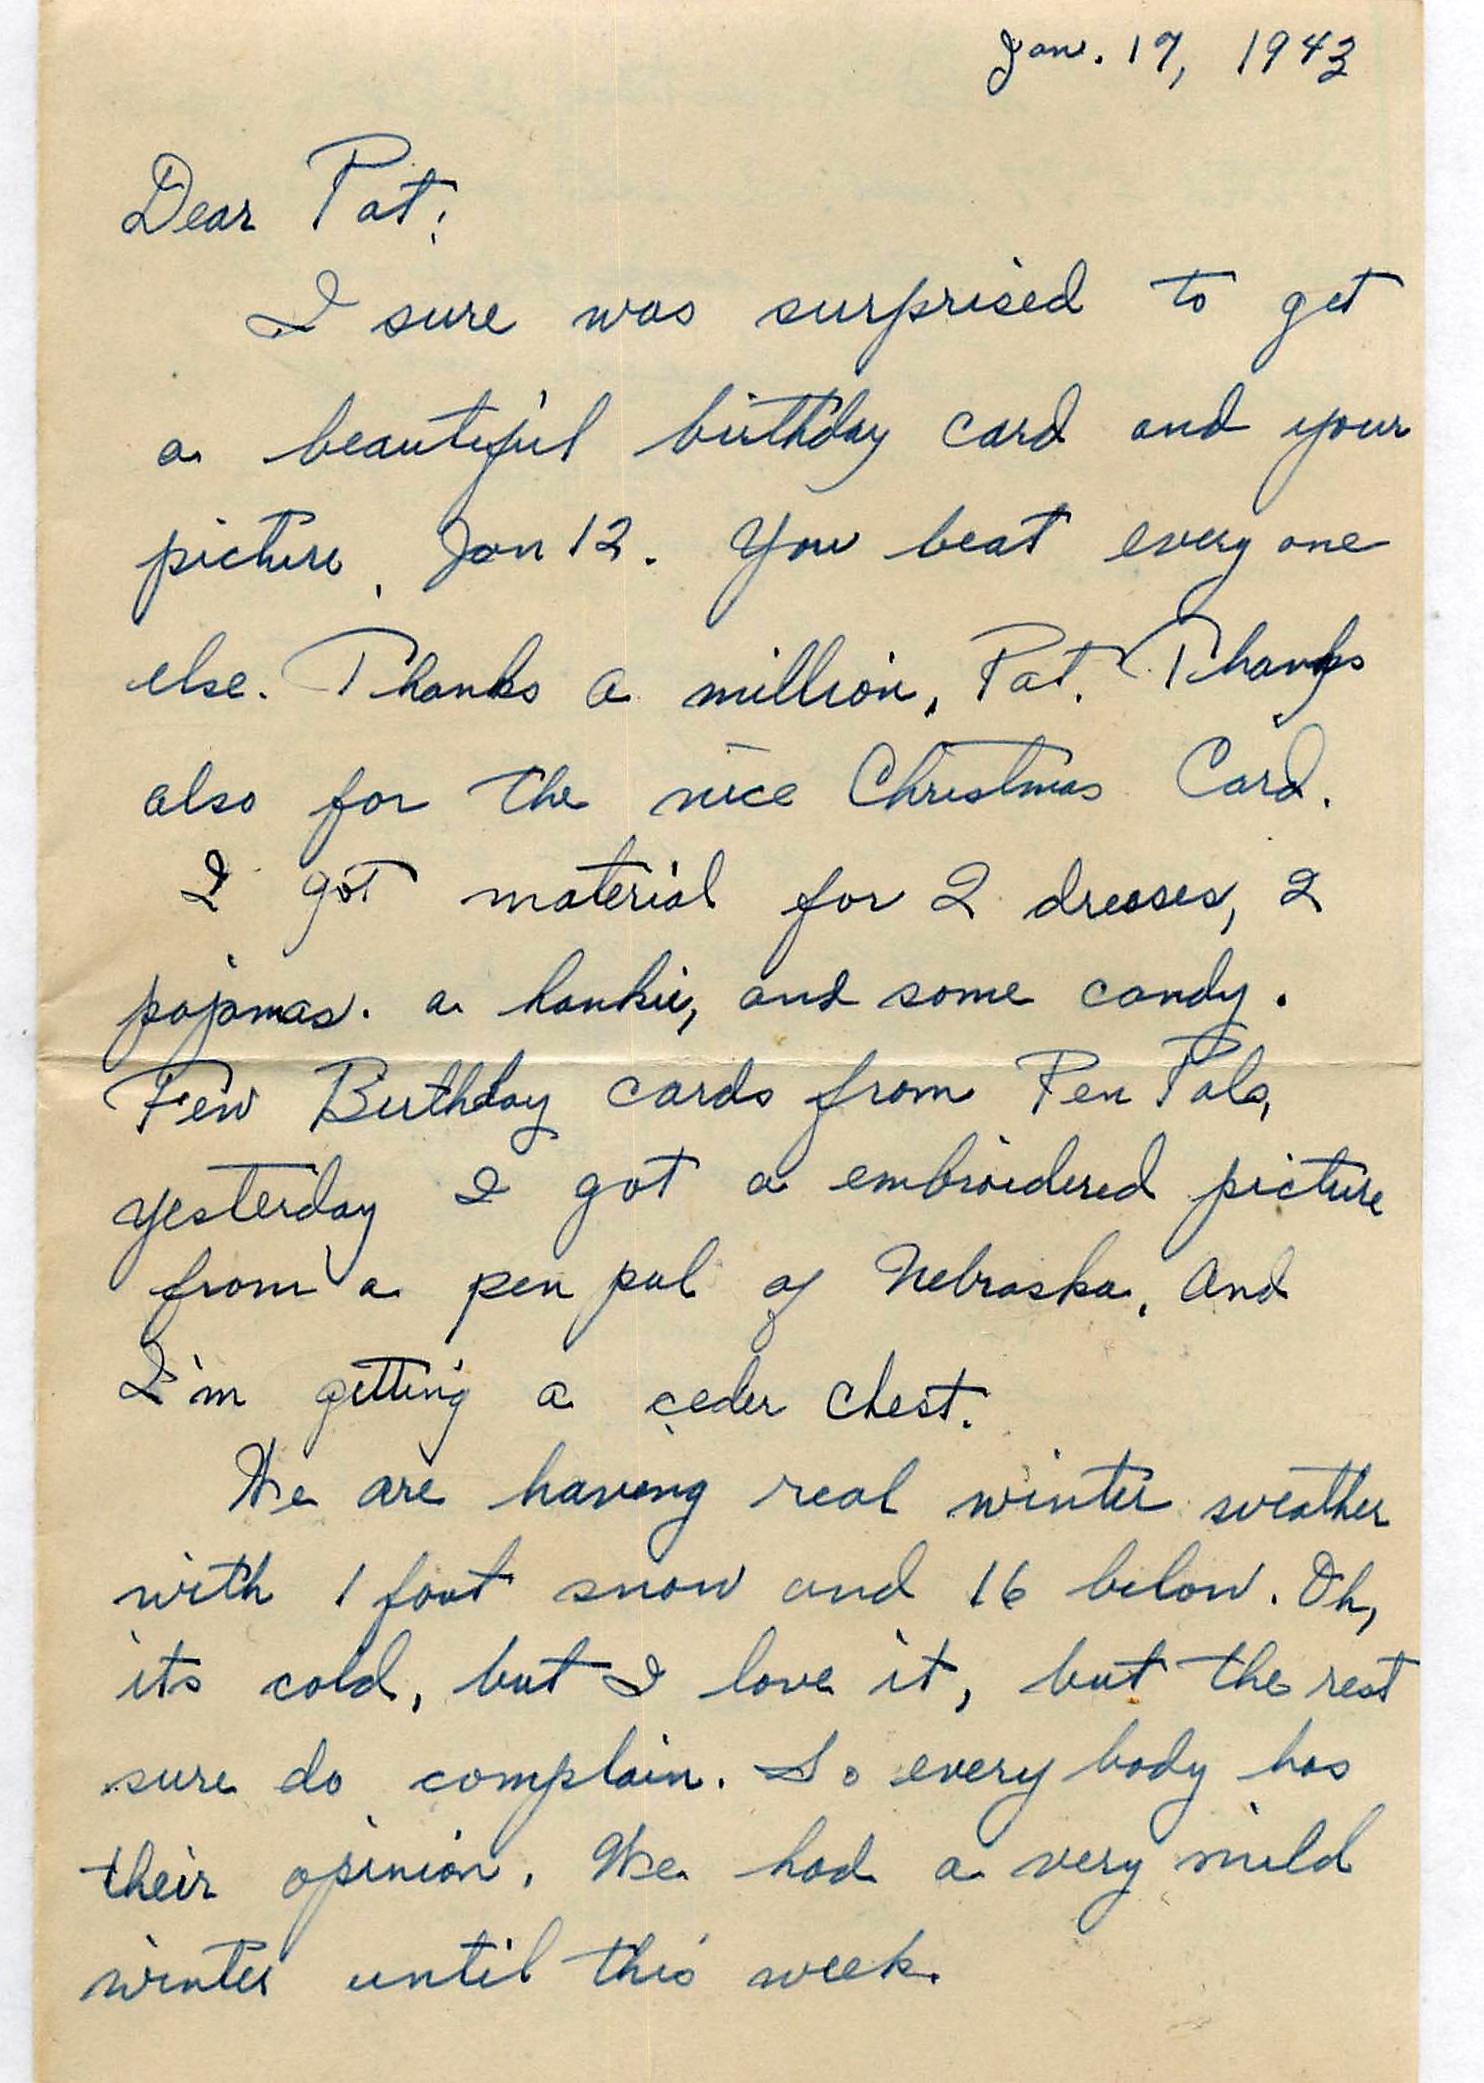 Jan. 19, 1943
Dear Pat:
I sure was surprised to get
a beautiful birthday card and your
picture, Jan 12. You beat every one
else. Thanks a million, Pat. Thanks
also for the nice Christmas Card.
I got material for 2 dresses, 2
pajamas. a hankie, and some candy.
Few Birthday cards from Pen Pals,
yesterday I got a embroidered picture
from a pen pal of Nebraska. And
I'm getting a ceder chest.
We are having real winter weather
with 1 foot snow and 16 below. Oh,
its cold, but I love it, but the rest
sure do complain. So every body has
their opinion. We had a very mild
winter until this week.